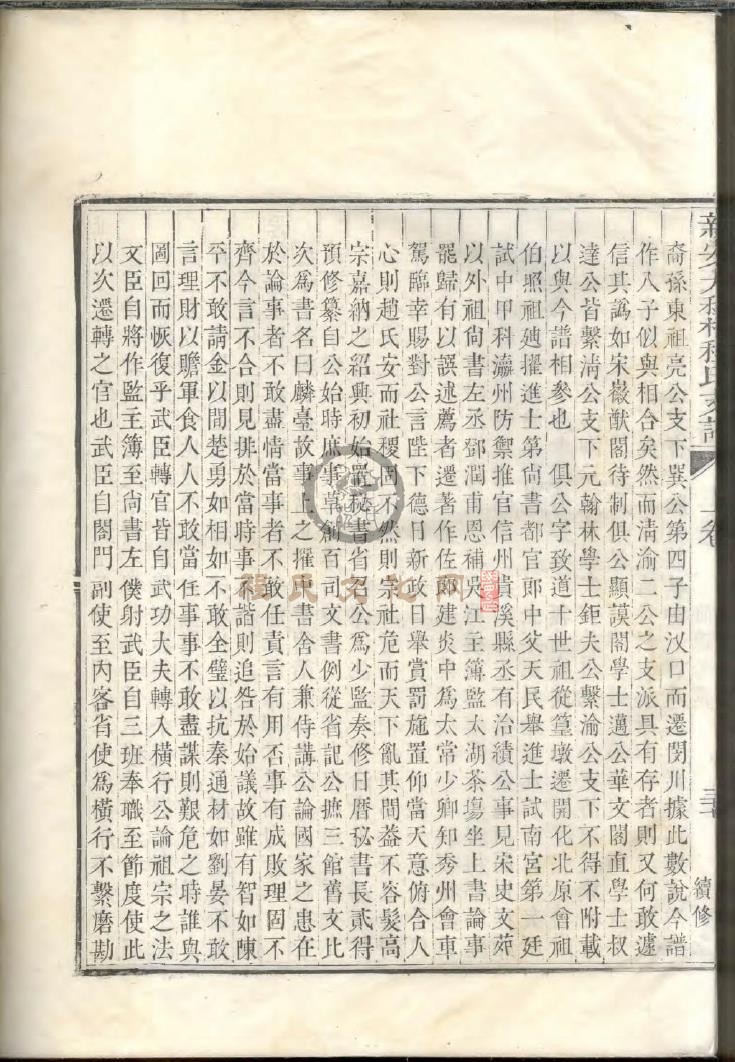 裔孫東祖亮公支下巽公第四子由汊口而遷閔川據此數說今譜
作入子似與相合矣然而淸渝二公之支派具有存者則又何敢遽
信其譌如宋嶶猷閣待制俱公顯謨閣學士邁公華文閣直學士叔
達公皆繫淸公支下元翰林學士鉅夫公繫渝公支下不得不附載
以與今譜相參也　俱公字致道十世祖從篁墩遷開化北原曾祖
伯照祖廸擢進士第尙書都官郎中父天民舉進士試南宮第一廷
試中甲科瀛州防禦推官信州貴溪縣丞有治績公事見宋史文苑
以外祖尙書左丞鄧潤甫恩補吳江主簿監太湖茶塲坐上書論事
罷歸有以譔述薦者遷著作佐郎建炎中爲太常少卿知秀州會車
駕臨幸賜對公言陛下德日新政日舉賞罰施置仰當天意俯合人
心則趙氏安而社稷固不然則宗社危而天下亂其間葢不容髮高
宗嘉納之紹興初始置秘書省召公爲少監奏修日曆秘書長貳得
預修纂自公始時庶事草創百司文書例從省記公摭三館舊文比
次爲書名曰麟臺故事上之擢中書舍人兼侍講公論國家之患在
於論事者不敢盡情當事者不敢任責言有用否事有成敗理固不
齊今言不合則見排於當時事不諧則追咎於始議故雖有智如陳
平不敢請金以間楚勇如相如不敢全璧以抗秦通材如劉晏不敢
言理財以贍軍食人人不敢當任事事不敢盡謀則艱危之時誰與
圖回而恢復乎武臣轉官皆自武功大夫轉入橫行公論祖宗之法
文臣自將作監主簿至尙書左僕射武臣自三班奉職至節度使此
以次遷轉之官也武臣自閤門副使至內客省使爲橫行不繫磨勘
續修
程氏文化网